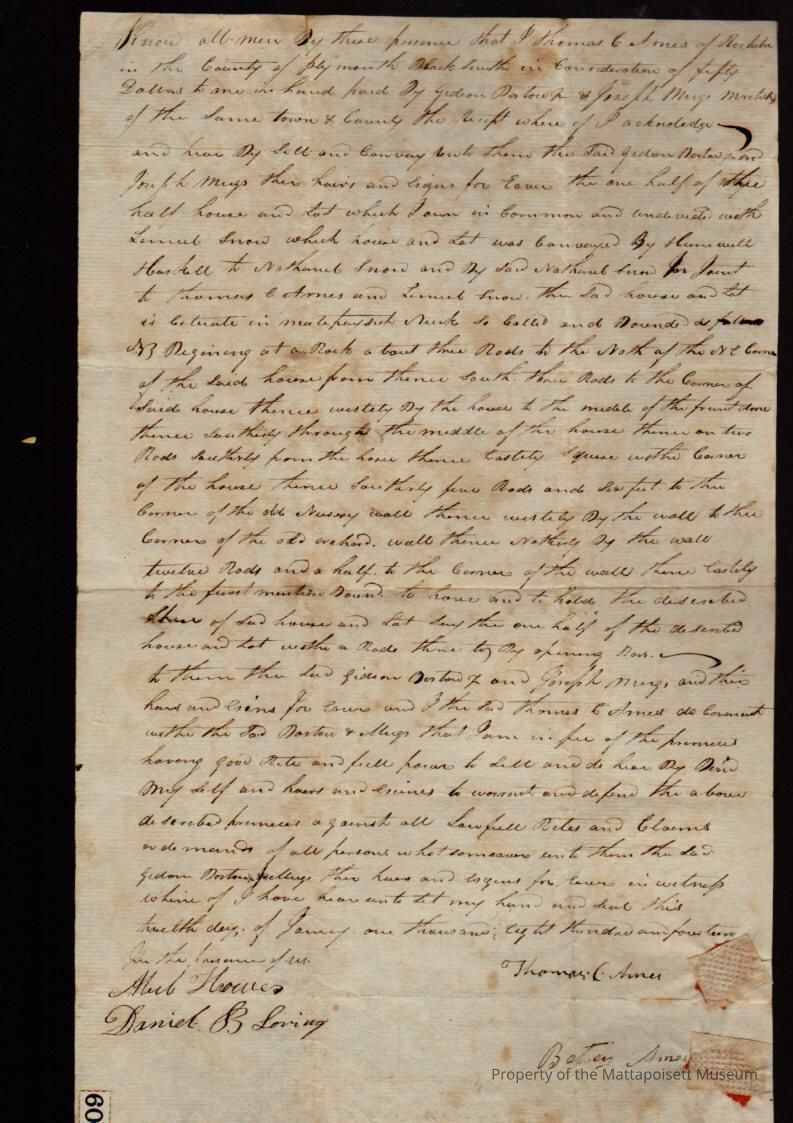 Know all men By these presence that I Thomas C Ames of
in the County of plymouth Black Smith in Consideration of fifty
Dollars to me in hand paid By Gideon Bartow & Joseph Meigs
of the Same town & County the Recept where of I acknoledge
and hear By Sell and Convay unto them the Sad Gideon Bartow and
Joseph Meigs their hairs and Signs for Eaver the one half of the
half house and Lot which I own in Common and undevided with
Lemuel Snow which house and Lot was Convayed By Hunewell
Haskell to Nathanel Snow and By Sad Nathanel Snow Joint
to Thomas C Ames and Lemuel Snow. The Sad house and Lot
is Cituate in matepaysett Neck So Called and Bounded as follows
Begining at a Rock about three Rods to the Noth of the N E Corner
of the Said house from thence South three Rods to the Corner of
Said house thence westely By the house to the medele of the frunt dore
thence Southerly through the meddle of the house thence on two
Rods Southerly from the house thence Eastely Square withe Corner
of the house thence Southerly five Rods and Six feet to the
Corner of the old Nusery wall thence westely By the wall to the
Corner of the old orchard wall thence Notherly By the wall
twelve Rods and a half to the Corner of the wall thence Eastely
to the furst mention Bound. to have and to hold the described
of Sad house and Lot Say the one half of the described
house and Lot withe a Rode thare to By opening Bars
to them the Sad Gideon Bartow and Joseph Meigs and their
hairs and for Eaver and I the Sad Thomas C Ames do Covenant
withe the Sad Bartow & Meigs that I am in fee of the premices
having good Rite and full power to Sell and do hear By Bind
My Self and hairs and to warrent and defend the above
described premices against all Lawfull Rites and Claims
or demands of all persons whotsomeaver unto them the Sad
Gideon Bartow & Meigs their hairs and for Eaver in witness
whire of I have hear unto Set my hand and Seal this
twelth day of one thousand Eight Hundred and fourteen
In the presance of us
Thomas C. Ames
Howes
Daniel B Loring
Betsey Ames
Property of the Mattapoisett Museum
60